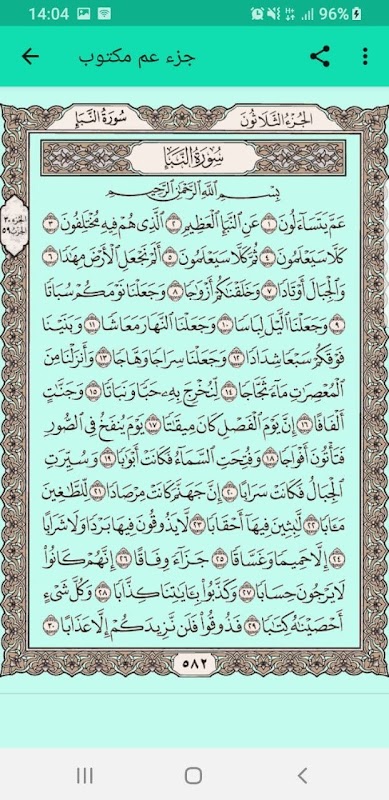 14:04 96%
جزء عم مكتوب
سُورَةُ النَّبَإِ الجُزْءُ الثَّلَاثُونَ
سُورَةُ النَّبَإِ
بِسْمِ اللَّهِ الرَّحْمَٰنِ الرَّحِيمِ
عَمَّ يَتَسَآءَلُونَ ١ عَنِ ٱلنَّبَإِ ٱلْعَظِيمِ ٢ ٱلَّذِى هُمْ فِيهِ مُخْتَلِفُونَ ٣
كَلَّا سَيَعْلَمُونَ ٤ ثُمَّ كَلَّا سَيَعْلَمُونَ ٥ أَلَمْ نَجْعَلِ ٱلْأَرْضَ مِهَٰدًا ٦
وَٱلْجِبَالَ أَوْتَادًا ٧ وَخَلَقْنَٰكُمْ أَزْوَٰجًا ٨ وَجَعَلْنَا نَوْمَكُمْ سُبَاتًا
٩ وَجَعَلْنَا ٱلَّيْلَ لِبَاسًا ١٠ وَجَعَلْنَا ٱلنَّهَارَ مَعَاشًا ١١ وَبَنَيْنَا
فَوْقَكُمْ سَبْعًا شِدَادًا ١٢ وَجَعَلْنَا سِرَاجًا وَهَّاجًا ١٣ وَأَنزَلْنَا مِنَ
ٱلْمُعْصِرَٰتِ مَآءً ثَجَّاجًا ١٤ لِّنُخْرِجَ بِهِۦ حَبًّا وَنَبَاتًا ١٥ وَجَنَّٰتٍ
أَلْفَافًا ١٦ إِنَّ يَوْمَ ٱلْفَصْلِ كَانَ مِيقَٰتًا ١٧ يَوْمَ يُنفَخُ فِى ٱلصُّورِ
فَتَأْتُونَ أَفْوَاجًا ١٨ وَفُتِحَتِ ٱلسَّمَآءُ فَكَانَتْ أَبْوَٰبًا ١٩ وَسُيِّرَتِ
ٱلْجِبَالُ فَكَانَتْ سَرَابًا ٢٠ إِنَّ جَهَنَّمَ كَانَتْ مِرْصَادًا ٢١ لِّلطَّٰغِينَ
مَـَٔابًا ٢٢ لَّٰبِثِينَ فِيهَآ أَحْقَابًا ٢٣ لَّا يَذُوقُونَ فِيهَا بَرْدًا وَلَا شَرَابًا
٢٤ إِلَّا حَمِيمًا وَغَسَّاقًا ٢٥ جَزَآءً وِفَاقًا ٢٦ إِنَّهُمْ كَانُوا۟
لَا يَرْجُونَ حِسَابًا ٢٧ وَكَذَّبُوا۟ بِـَٔايَٰتِنَا كِذَّابًا ٢٨ وَكُلَّ شَىْءٍ
أَحْصَيْنَٰهُ كِتَٰبًا ٢٩ فَذُوقُوا۟ فَلَن نَّزِيدَكُمْ إِلَّا عَذَابًا ٣٠
٥٨٢